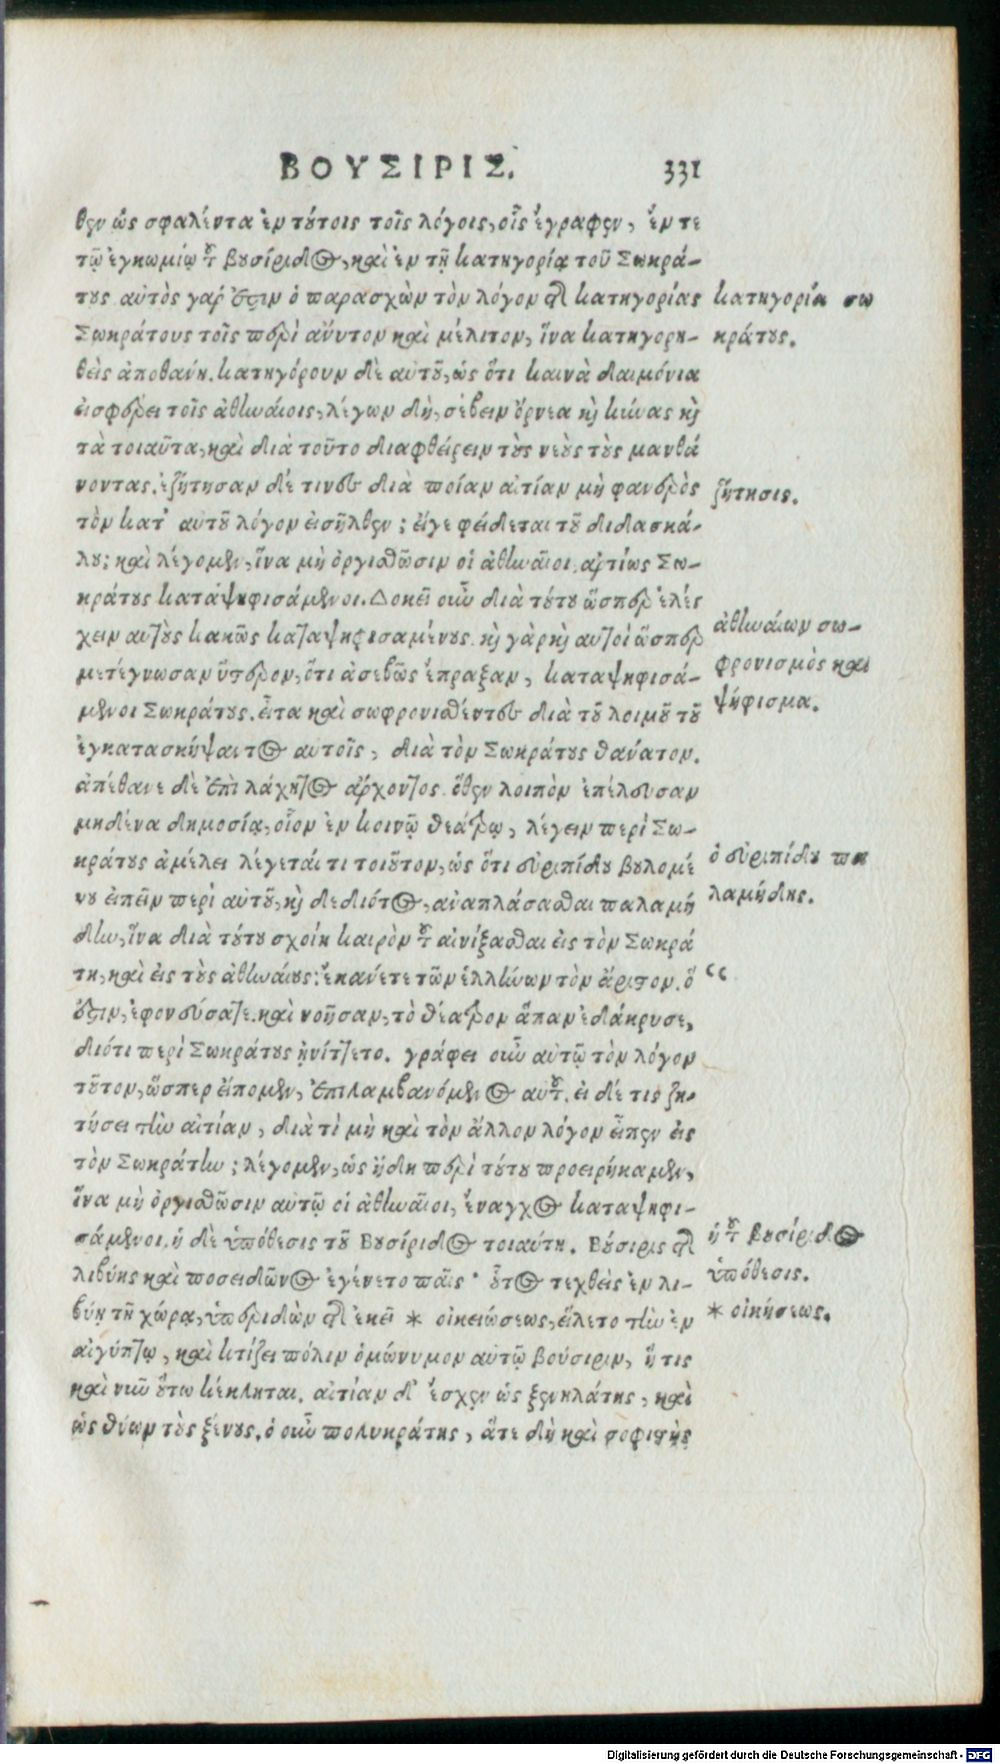 ΒΟΥΣΙΡΙΣ. 331
θεν ὡς σφαλέντα ἐν τούτοις τοῖς λόγοις, οἷς ἔγραψεν, ἔν τε
τῷ ἐγκωμίῳ τοῦ βουσίριδος, καὶ ἐν τῇ κατηγορίᾳ τοῦ Σωκρά-
τους. αὐτὸς γάρ ἐστιν ὁ παρασχὼν τὸν λόγον τῆς κατηγορίας
κατηγορία σω
Σωκράτους τοῖς περὶ ἄνυτον καὶ μέλιτον, ἵνα κατηγορη-
κράτους.
θεὶς ἀποθανῇ. κατηγόρουν δὲ αὐτοῦ, ὡς ὅτι καινὰ δαιμόνια
εἰσφέρει τοῖς ἀθηναίοις, λέγων δὴ, σέβειν ὄρνεα καὶ κύνας καὶ
τὰ τοιαῦτα, καὶ διὰ τοῦτο διαφθείρειν τοὺς νέους τοὺς μανθά
νοντας. ἐζήτησαν δέ τινες διὰ ποίαν αἰτίαν μὴ φανερὸς
ζήτησις.
τὸν κατ' αὐτοῦ λόγον εἰσῆλθεν; εἴγε φείδεται τοῦ διδασκά-
λου; καὶ λέγομεν, ἵνα μὴ ὀργισθῶσιν οἱ ἀθηναῖοι, ἀρτίως Σω-
κράτους καταψηφισάμενοι. Δοκεῖ οὖν διὰ τούτου ὥσπερ ἐλέγ
χειν αὐτοὺς κακῶς καταψηφισαμένους. καὶ γὰρ καὶ αὐτοὶ ὥσπερ
ἀθηναίων σω-
μετέγνωσαν ὕστερον, ὅτι ἀσεβῶς ἔπραξαν, καταψηφισά-
φρονισμὸς καὶ
μενοι Σωκράτους. εἶτα καὶ σωφρονισθέντες διὰ τοῦ λοιμοῦ τοῦ
ψήφισμα.
ἐγκατασκήψαντος αὐτοῖς, διὰ τὸν Σωκράτους θάνατον.
ἀπέθανε δὲ ἐπὶ λάχητος ἄρχοντος. ὅθεν λοιπὸν ἐπέλευσαν
μηδένα δημοσίᾳ, οἷον ἐν κοινῷ θεάτρῳ, λέγειν περὶ Σω-
κράτους ἀμέλει λέγεταί τι τοιοῦτον, ὡς ὅτι εὐριπίδου βουλομέ
ὁ εὐριπίδου πα
νου εἰπεῖν περὶ αὐτοῦ, καὶ δεδιότος, ἀναπλάσασθαι παλαμή
λαμήδης.
δην, ἵνα διὰ τούτου σχοίη καιρὸν τοῦ αἰνίξασθαι εἰς τὸν Σωκρά
τη, καὶ εἰς τοὺς ἀθηναίους: ἐκανέτε τῶν ἑλλήνων τὸν ἄριστον. ὅ
“
ἐστιν, ἐφονεύσατε. καὶ νοῆσαν, τὸ θέατρον ἅπαν ἐδάκρυσε,
διότι περὶ Σωκράτους ᾐνίττετο. γράφει οὖν αὐτῷ τὸν λόγον
τοῦτον, ὥσπερ εἴπομεν, ἐπιλαμβανόμενος αὐτοῦ. εἰ δέ τις ζη-
τήσει τὴν αἰτίαν, διὰ τί μὴ καὶ τὸν ἄλλον λόγον εἶπεν εἰς
τὸν Σωκράτην; λέγομεν, ὡς ἤδη περὶ τούτου προειρήκαμεν,
ἵνα μὴ ὀργισθῶσιν αὐτῷ οἱ ἀθηναῖοι, ἔναγχος καταψηφι-
σάμενοι. ἡ δὲ ὑπόθεσις τοῦ Βουσίριδος τοιαύτη. Βούσιρις τῆς
ἡ τοῦ βουσίριδος
λιβύης καὶ ποσειδῶνος ἐγένετο παῖς· οὗτος τεχθεὶς ἐν λι-
ὑπόθεσις.
βύῃ τῇ χώρᾳ, ὑπεριδὼν τῆς ἐκεῖ * οἰκειώσεως, εἵλετο τὴν ἐν
* οἰκήσεως.
αἰγύπτῳ, καὶ κτίζει πόλιν ὁμώνυμον αὐτῷ βούσιριν, ἥ τις
καὶ νῦν οὕτω κέκληται. αἰτίαν δ' ἔσχεν ὡς ξενηλάτης, καὶ
ὡς θύων τοὺς ξένους. ὁ οὖν πολυκράτης, ἅτε δὴ καὶ σοφιστὴς
Digitalisierung gefördert durch die Deutsche Forschungsgemeinschaft - DFG